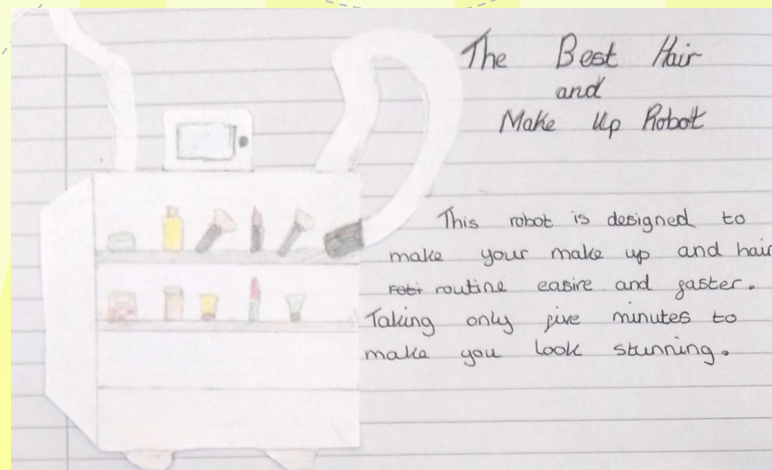 The Best Hair
and
Make Up Robot
This robot is designed to
make your make up and hair
roti routine easire and faster.
Taking only five minutes to
make you look stunning.